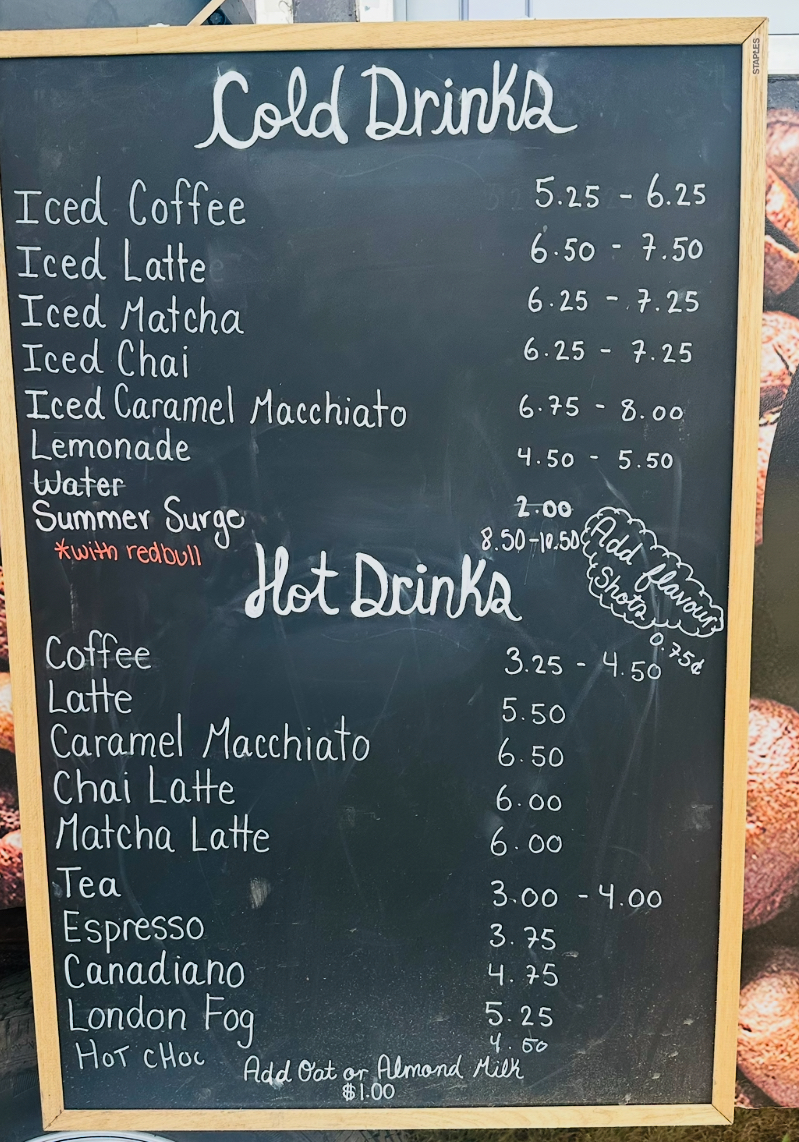 STAPLES
Cold Drinks
Iced Coffee 5.25 - 6.25
Iced Latte 6.50 - 7.50
Iced Matcha 6.25 - 7.25
Iced Chai 6.25 - 7.25
Iced Caramel Macchiato 6.75 - 8.00
Lemonade 4.50 - 5.50
Water 2.00
Summer Surge 8.50-10.50
*with redbull
Add flavour
Shots
0.75¢
Hot Drinks
Coffee 3.25 - 4.50
Latte 5.50
Caramel Macchiato 6.50
Chai Latte 6.00
Matcha Latte 6.00
Tea 3.00 - 4.00
Espresso 3.75
Canadiano 4.75
London Fog 5.25
HOT CHOC 4.50
Add Oat or Almond Milk
$1.00